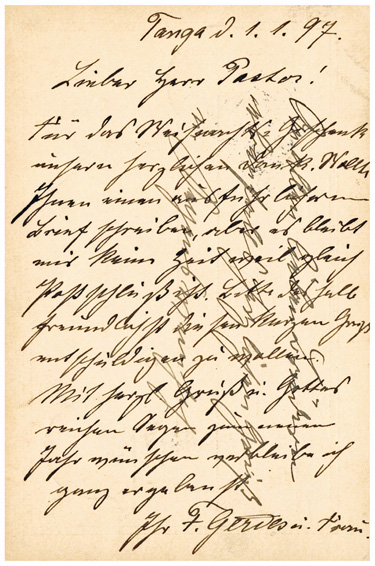 Tanga d. 1. 1. 97.
Lieber Herr Pastor!
Für das Weihnachts Geschenk
unsern herzlichen Dank. Wollte
Ihnen einen ausführlicheren
Brief schreiben, aber es bleibt
mir keine Zeit weil gleich
Postschluß ist. Bitte deshalb
freundlichst diesen kurzen Gruß
entschuldigen zu wollen.
Mit herzl. Gruß u. Gottes
reichen Segen zum neuen
Jahr wünschen verbleibe ich
ganz ergebenst
Ihr F. Gerdes u. Frau.